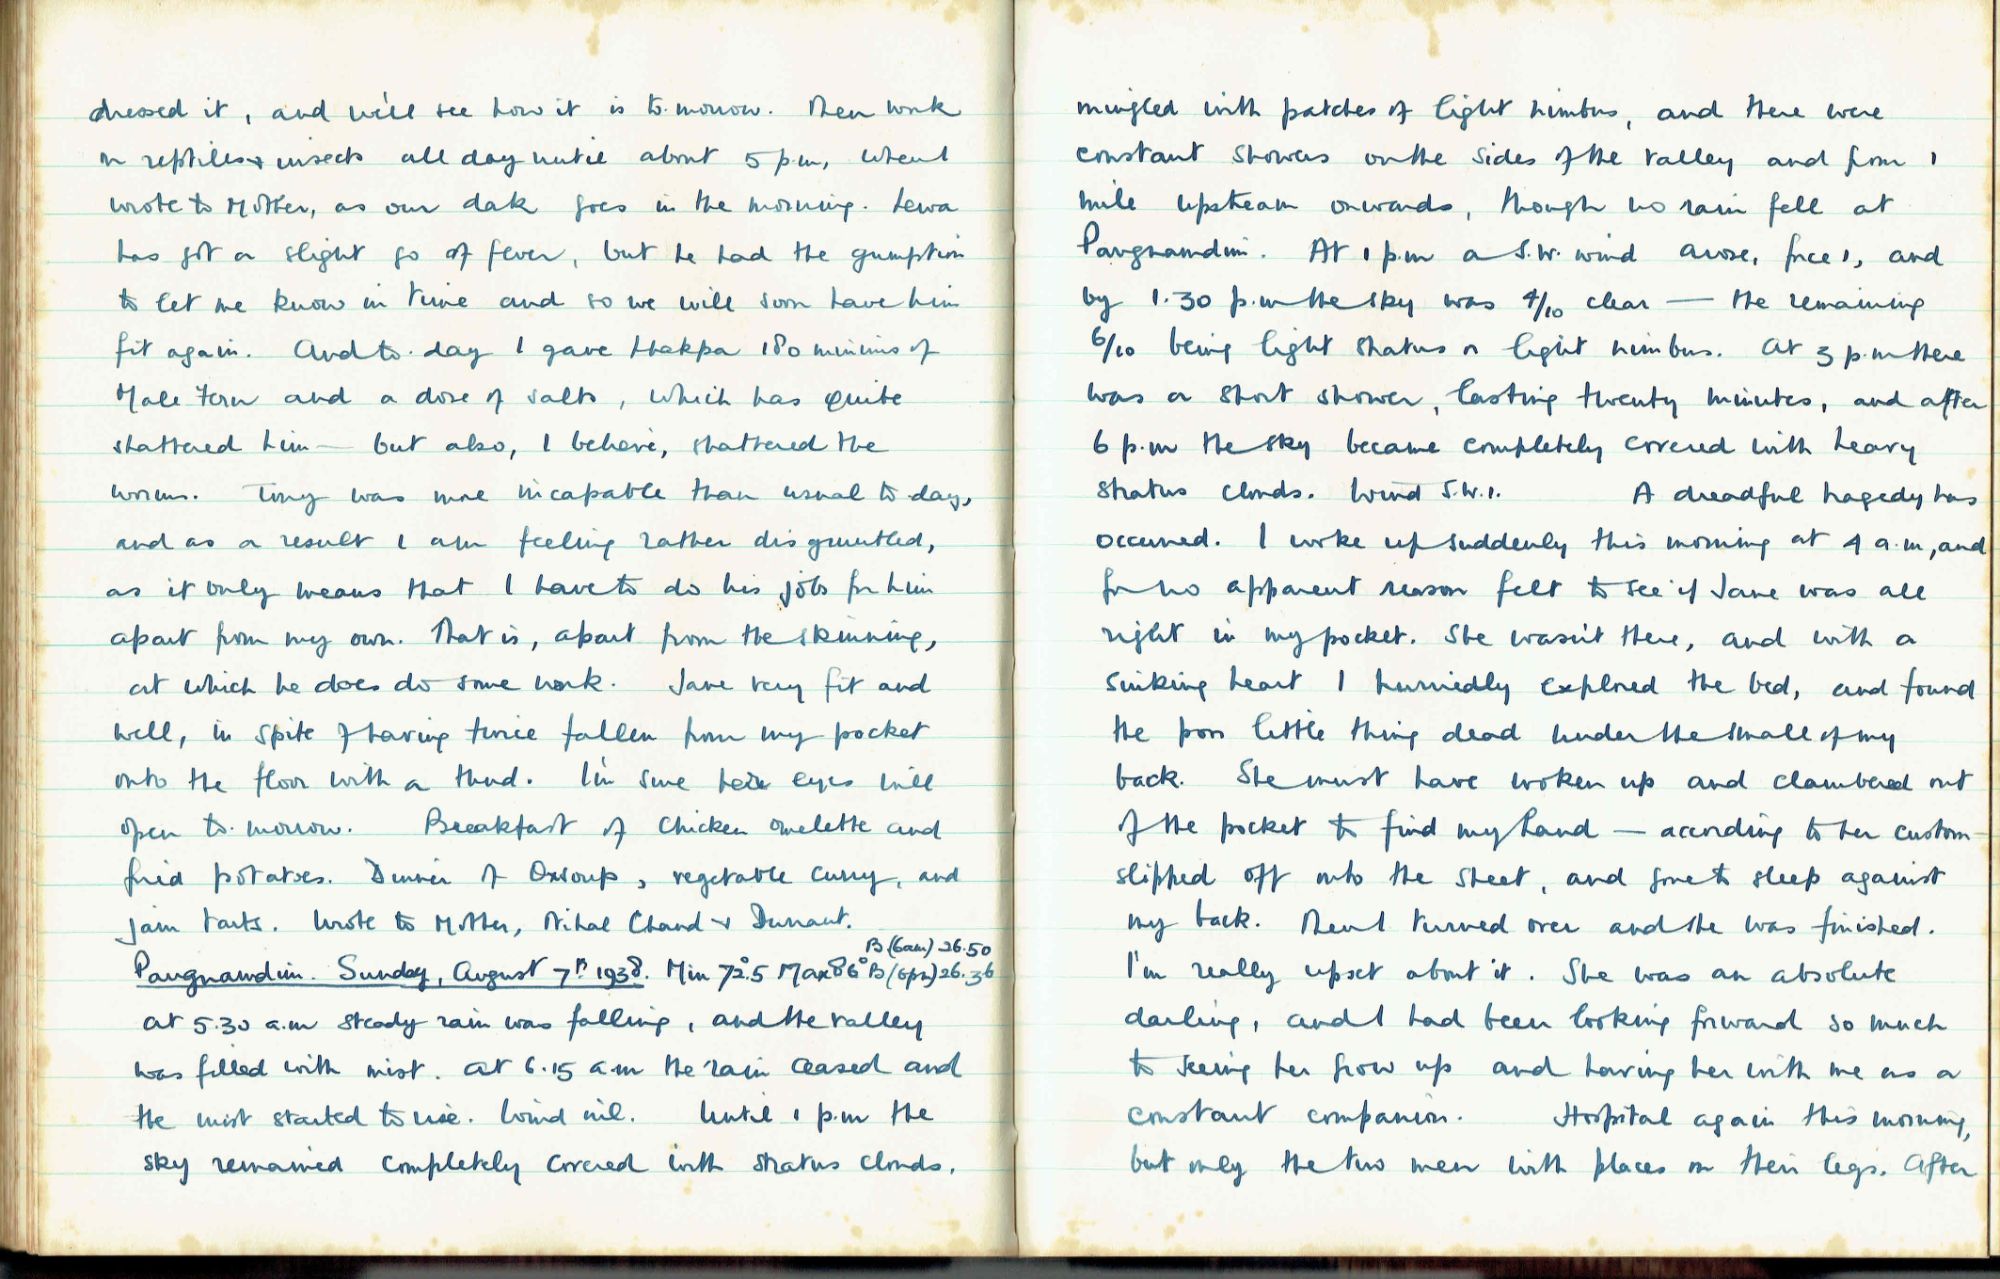 dressed it, and we'll see how it is to-morrow. Then work
on reptiles & insects all day until about 5 p.m, when I
wrote to Mother, as our dak goes in the morning. Lewa
has got a slight go of fever, but he had the gumption
to let me know in time and so we will soon have him
fit again. And to-day I gave Lhakpa 180 minims of
Male Fern and a dose of salts, which has quite
shattered him — but also, I believe, shattered the
worms. Tiny was more incapable than usual to-day,
and as a result I am feeling rather disgruntled,
as it only means that I have to do his job for him
apart from my own. That is, apart from the skinning,
at which he does do some work. Jane very fit and
well, in spite of having twice fallen from my pocket
onto the floor with a thud. I'm sure her eyes will
open to-morrow. Breakfast of chicken omelette and
fried potatoes. Dinner of Oxsoup, vegetable curry, and
jam tarts. Wrote to Mother, Nihal Chand & Dunant.
B (6am) 26.50
Pangnamdim. Sunday, August 7th 1938. Min 72°.5 Max 86° B (6pm) 26.36
At 5.30 a.m steady rain was falling, and the valley
was filled with mist. At 6.15 a.m the rain ceased and
the mist started to rise. Wind nil. Until 1 p.m the
sky remained completely covered with stratus clouds,
mingled with patches of light nimbus, and there were
constant showers on the sides of the valley and from 1
mile upstream onwards, though no rain fell at
Pangnamdim. At 1 p.m a S.W. wind arose, force 1, and
by 1.30 p.m the sky was 4/10 clear — the remaining
6/10 being light stratus or light nimbus. At 3 p.m there
was a short shower, lasting twenty minutes, and after
6 p.m the sky became completely covered with heavy
stratus clouds. Wind S.W.1. A dreadful tragedy has
occurred. I woke up suddenly this morning at 4 a.m, and
for no apparent reason felt to see if Jane was all
right in my pocket. She wasn't there, and with a
sinking heart I hurriedly explored the bed, and found
the poor little thing dead under the small of my
back. She must have woken up and clambered out
of the pocket to find my hand — according to her custom —
slipped off onto the sheet, and gone to sleep against
my back. Then I turned over and she was finished.
I'm really upset about it. She was an absolute
darling, and I had been looking forward so much
to seeing her grow up and having her with me as a
constant companion. Hospital again this morning,
but only the two men with places on their legs. After